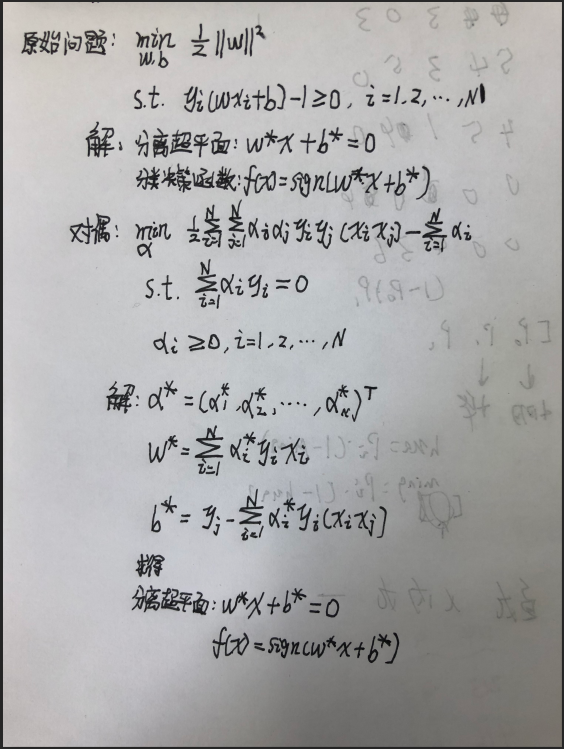 原始问题: min 1/2 ||w||²
w,b
s.t. yi(wxi+b)-1≥0, i=1,2,…,N
解: 分离超平面: w*x+b*=0
分类决策函数: f(x)=sign(w*x+b*)
对偶: min 1/2 Σ(i=1→N) Σ(j=1→N) αiαjyiyj(xixj) - Σ(i=1→N) αi
α
s.t. Σ(i=1→N) αiyi=0
αi≥0, i=1,2,…,N
解: α*=(α1*,α2*,…,αN*)ᵀ
w*=Σ(i=1→N) αi*yixi
b*=yj-Σ(i=1→N) αi*yi(xixj)
求得
分离超平面: w*x+b*=0
f(x)=sign(w*x+b*)